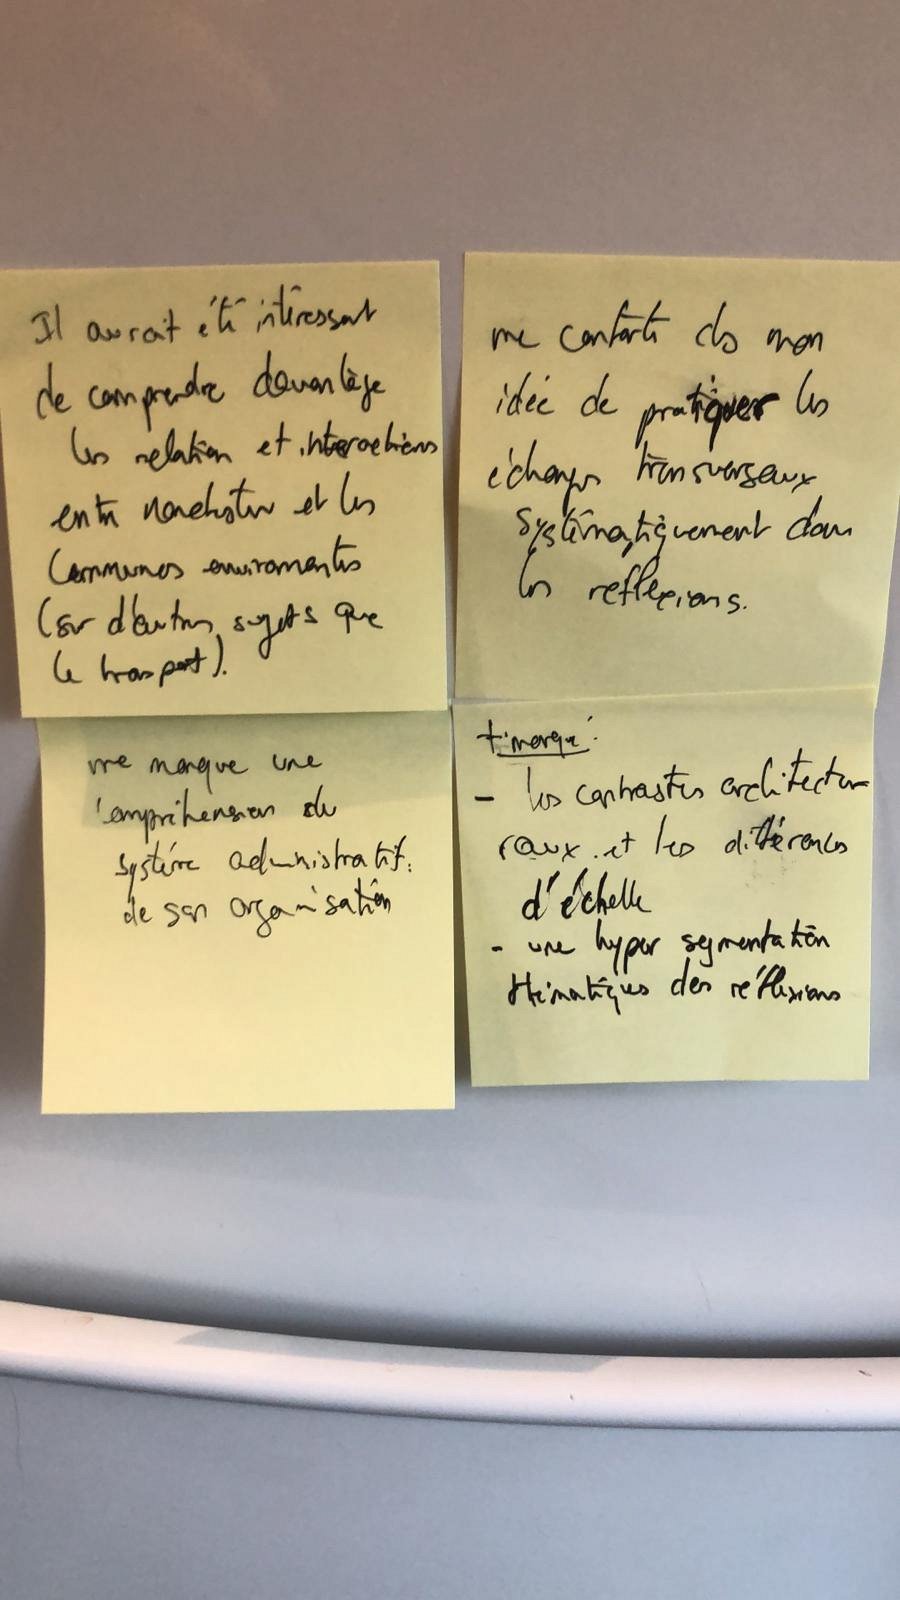 Il aurait été intéressant
de comprendre davantage
les relation et interactions
entre Manchester et les
Communes environnantes
(sur d'autres sujets que
le transport).
me conforte ds mon
idée de pratiquer les
échanges transversaux
systématiquement dans
les reflexions.
me manque une
compréhension du
système administratif.
de son organisation
+ marqué :
- les contrastes architectu-
raux et les différences
d'échelle
- une hyper segmentation
thématiques des réflexions